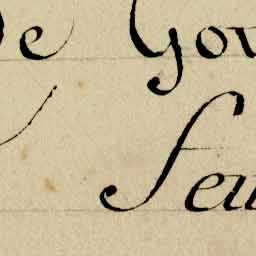 de Gou
feu